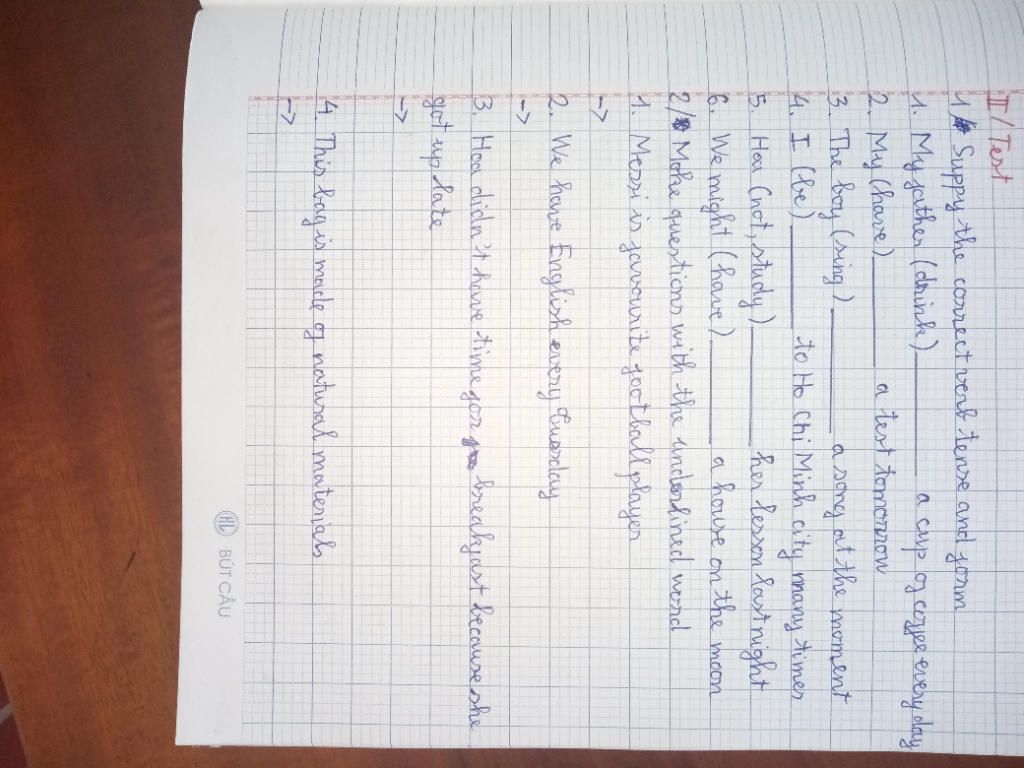 II/ Test
1/ Suppy the correct verb tense and form
1. My father (drink) ________ a cup of coffee every day
2. My (have) ________ a test tomorrow
3. The boy (sing) ________ a song at the moment
4. I (be) ________ to Ho Chi Minh city many times
5. Hoa (not, study) ________ her lesson last night
6. We might (have) ________ a house on the moon
2/ Make questions with the underlined word
1. Messi is favourite football player
->
2. We have English every Tuesday
->
3. Hoa didn't have time for breakfast because she
got up late
->
4. This bag is made of natural materials
->
BÚT CÂU